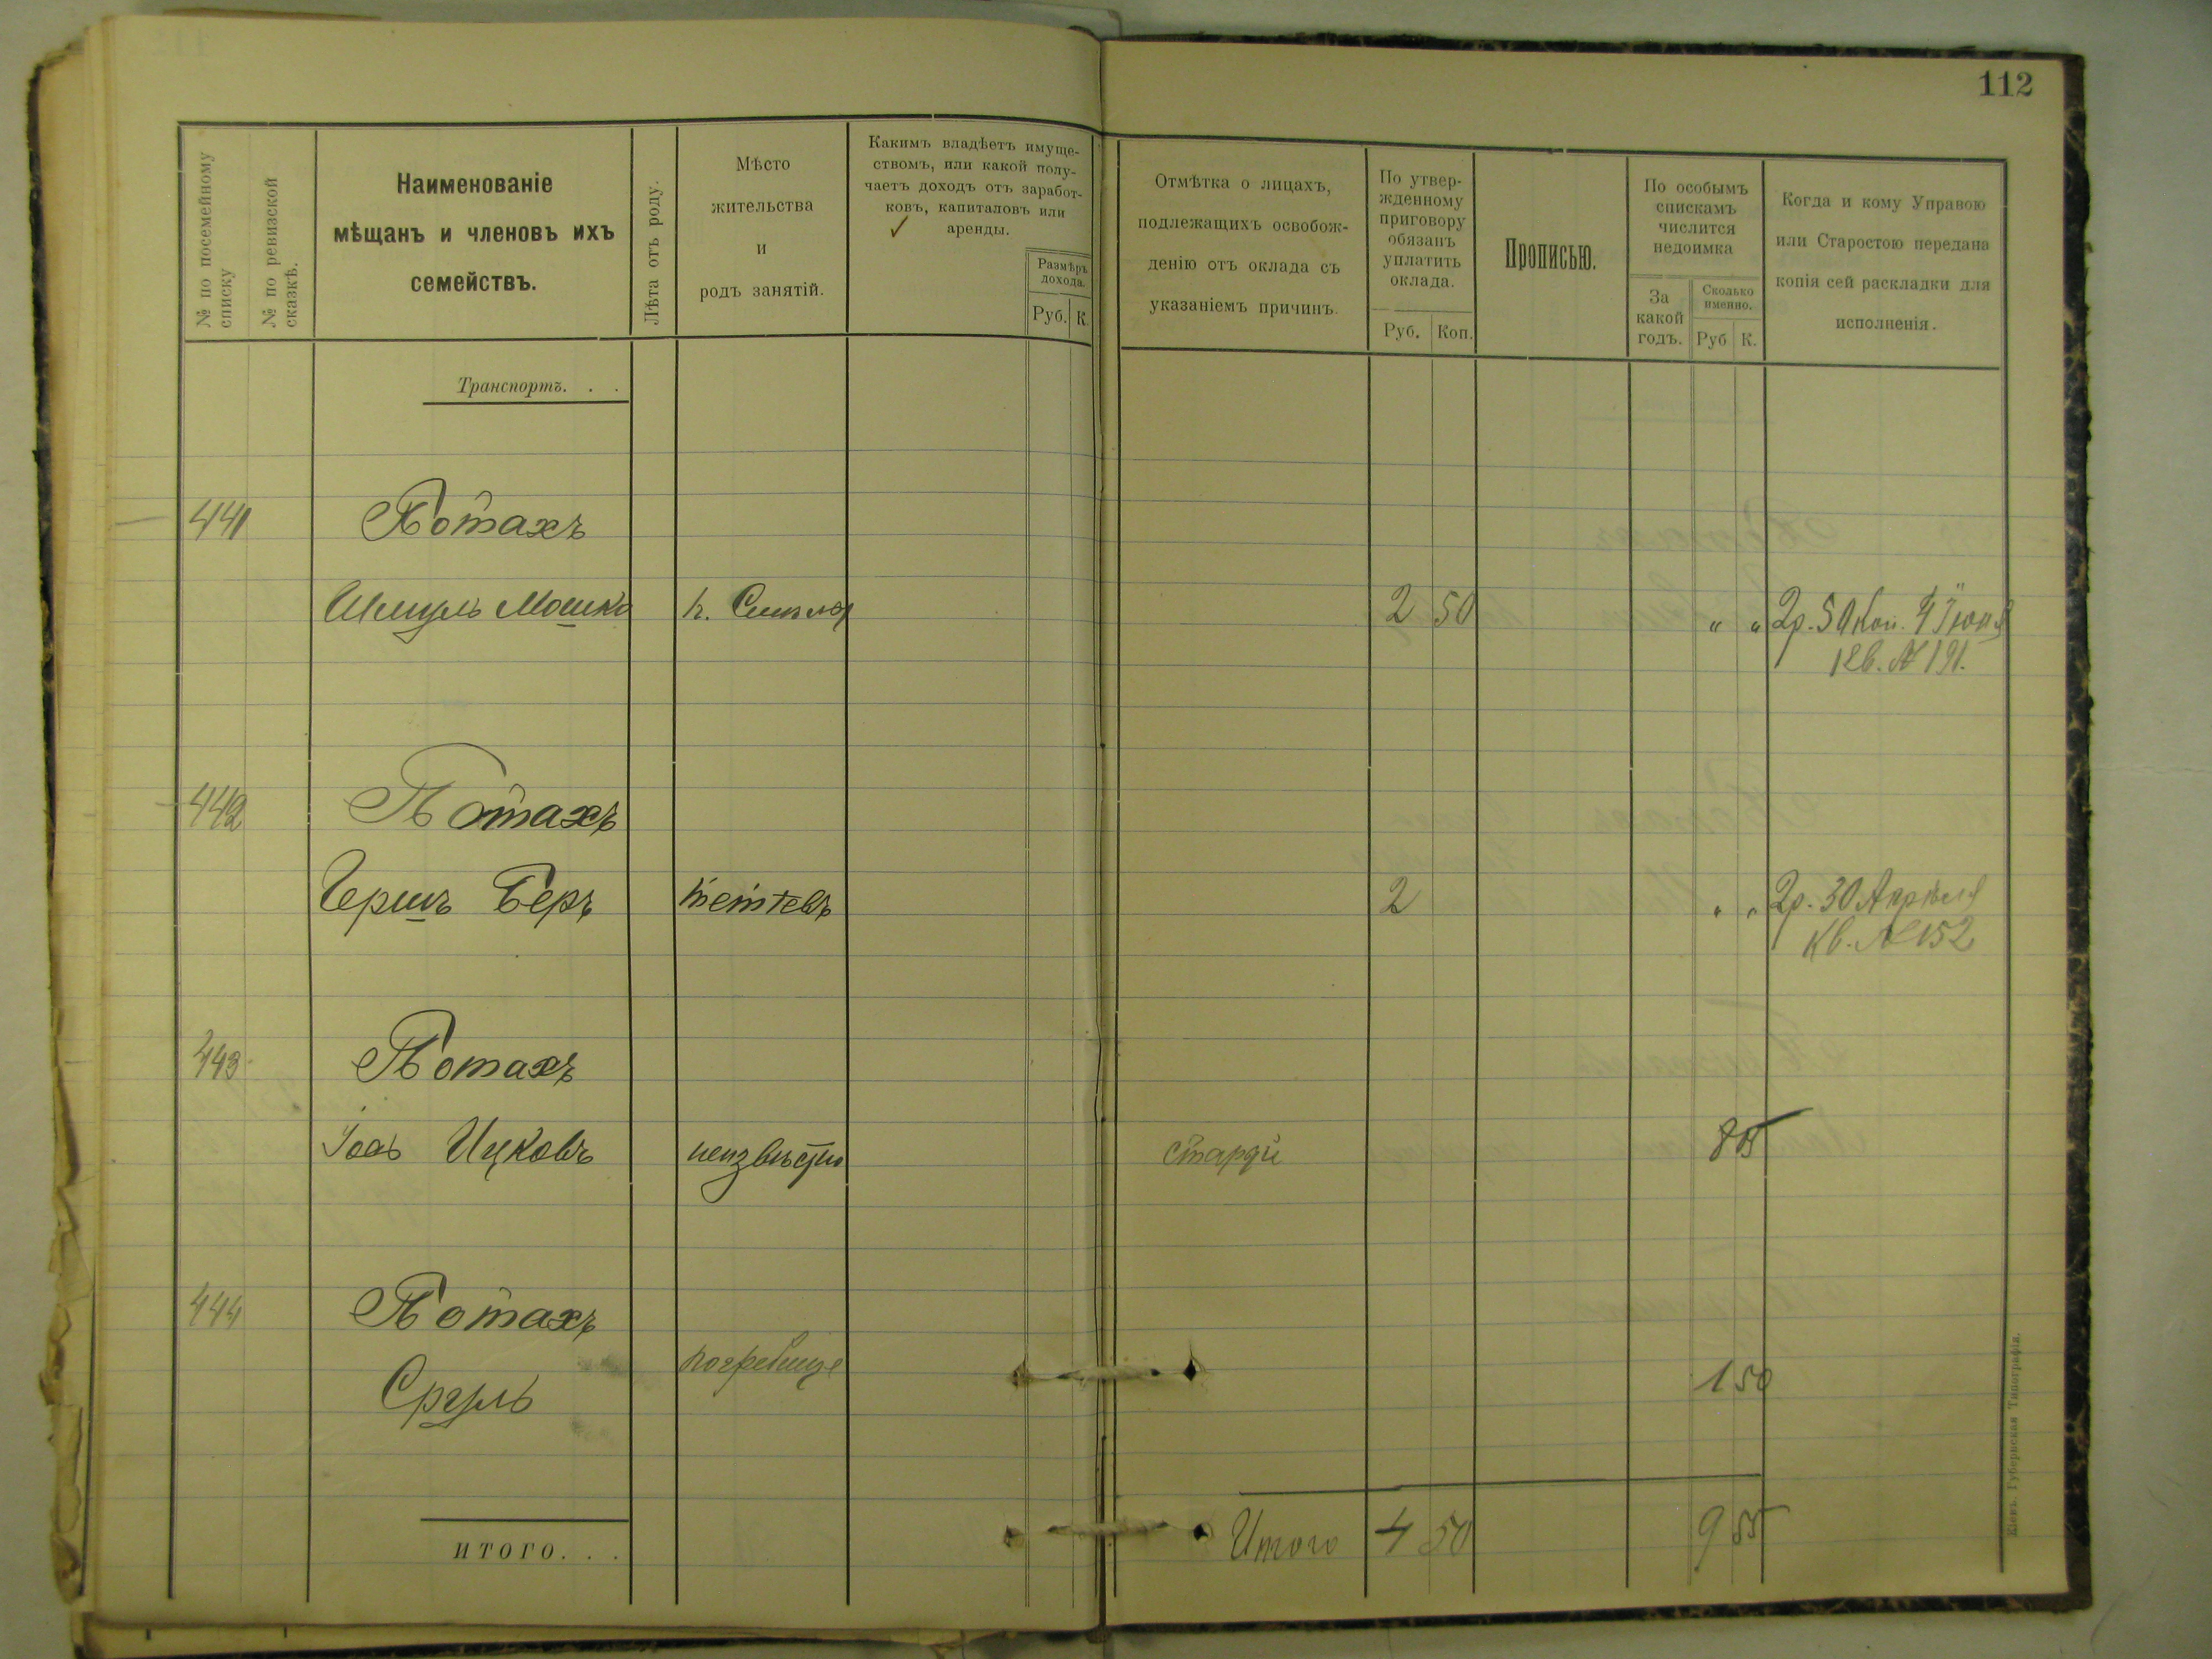 112
№ по посемейному списку
№ по ревизской сказкѣ.
Наименованіе
мѣщанъ и членовъ ихъ
семействъ.
Лѣта отъ роду.
Мѣсто
жительства
и
родъ занятій.
Какимъ владѣетъ имуще-
ствомъ, или какой полу-
чаетъ доходъ отъ заработ-
ковъ, капиталовъ или
аренды.
Размѣръ
дохода.
Руб. К.
Отмѣтка о лицахъ,
подлежащихъ освобож-
денію отъ оклада съ
указаніемъ причинъ.
По утвер-
жденному
приговору
обязанъ
уплатить
оклада.
Руб. Коп.
Прописью.
По особымъ
спискамъ
числится
недоимка
За
какой
годъ.
Сколько
именно.
Руб К.
Когда и кому Управою
или Старостою передана
копія сей раскладки для
исполненія.
Транспортъ. . .
441 Потахъ
Шмуль Мошко 2 50 " " 2р. 50 коп. 4 Іюня
кв. № 191.
442 Потахъ
Гершъ Беръ 2 " " 2р. 30 Апрѣля
кв. № 152
443 Потахъ
Ицковъ неизвѣстно 8 05
444 Потахъ
Сруль погребище 1 50
ИТОГО. . .
Итого 4 50 9 55
Кіевъ. Губернская Типографія.